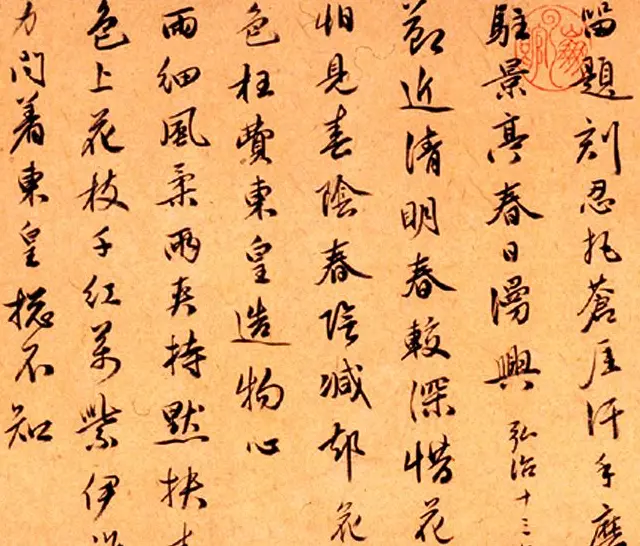 留題刻忍把蒼厓汗手磨
駐景亭春日漫興 弘治十三
節近清明春較深惜花
怕見春陰春陰減却花
色枉費東皇造物心
雨細風柔兩夾持默扶春
色上花枝千紅萬紫伊誰
力問着東皇揔不知